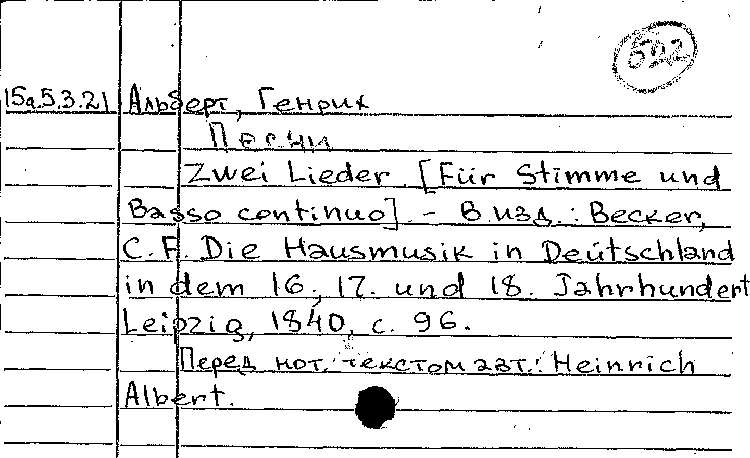 522
15а.5.3.21 Альберт, Генрих
Песни
Zwei Lieder [Für Stimme und
Basso continuo]. - В изд.: Becker,
C.F. Die Hausmusik in Deutschland
in dem 16., 17. und 18. Jahrhundert
Leipzig, 1840, с. 96.
Перед нот. текстом авт.: Heinrich
Albert.